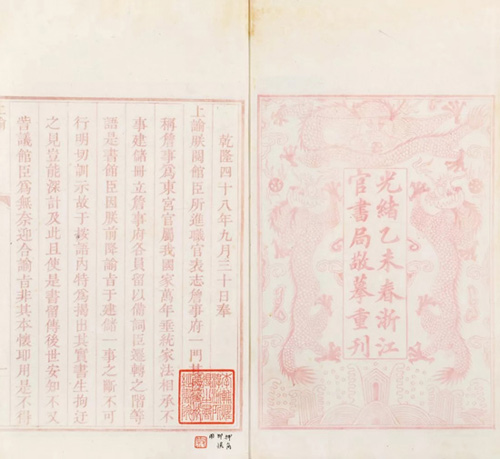 光緒乙未春浙江
官書局敬摹重刊
乾隆四十八年九月三十日奉
上諭朕閱館臣所進職官表志詹事府一門
稱詹事爲東宮官屬我國家萬年垂統家法相承不
事建儲冊立詹事府各員留以備詞臣遷轉之階等
語是書館臣因朕前降諭旨于建儲一事之斷不可
行明切訓示故于該語內特爲揭出其實書生拘迂
之見豈能深計及此且使是書留傳後世安知不又
訾議館臣爲無奈迎合諭旨非其本懷卽用是不得